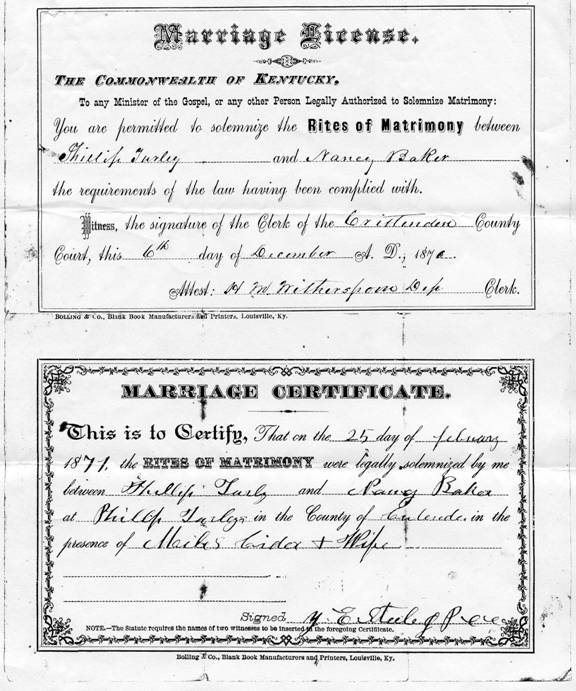 Marriage License.
THE COMMONWEALTH OF KENTUCKY,
To any Minister of the Gospel, or any other Person Legally Authorized to Solemnize Matrimony:
You are permitted to solemnize the Rites of Matrimony between
Phillip Turley and Nancy Baker
the requirements of the law having been complied with.
Witness, the signature of the Clerk of the Crittenden County
Court, this 6th day of December A. D., 1870.
Attest: H M Witherspoon Dep Clerk.
BOLLING & CO., Blank Book Manufacturers and Printers, Louisville, Ky.
MARRIAGE CERTIFICATE.
This is to Certify, That on the 25 day of february
1871, the RITES OF MATRIMONY were legally solemnized by me
between Phillip Turly and Nancy Baker
at Phillip Turleys in the County of in the
presence of & Wife
Signed
NOTE.—The Statute requires the names of two witnesses to be inserted in the foregoing Certificate.
Bolling & Co., Blank Book Manufacturers and Printers, Louisville, Ky.